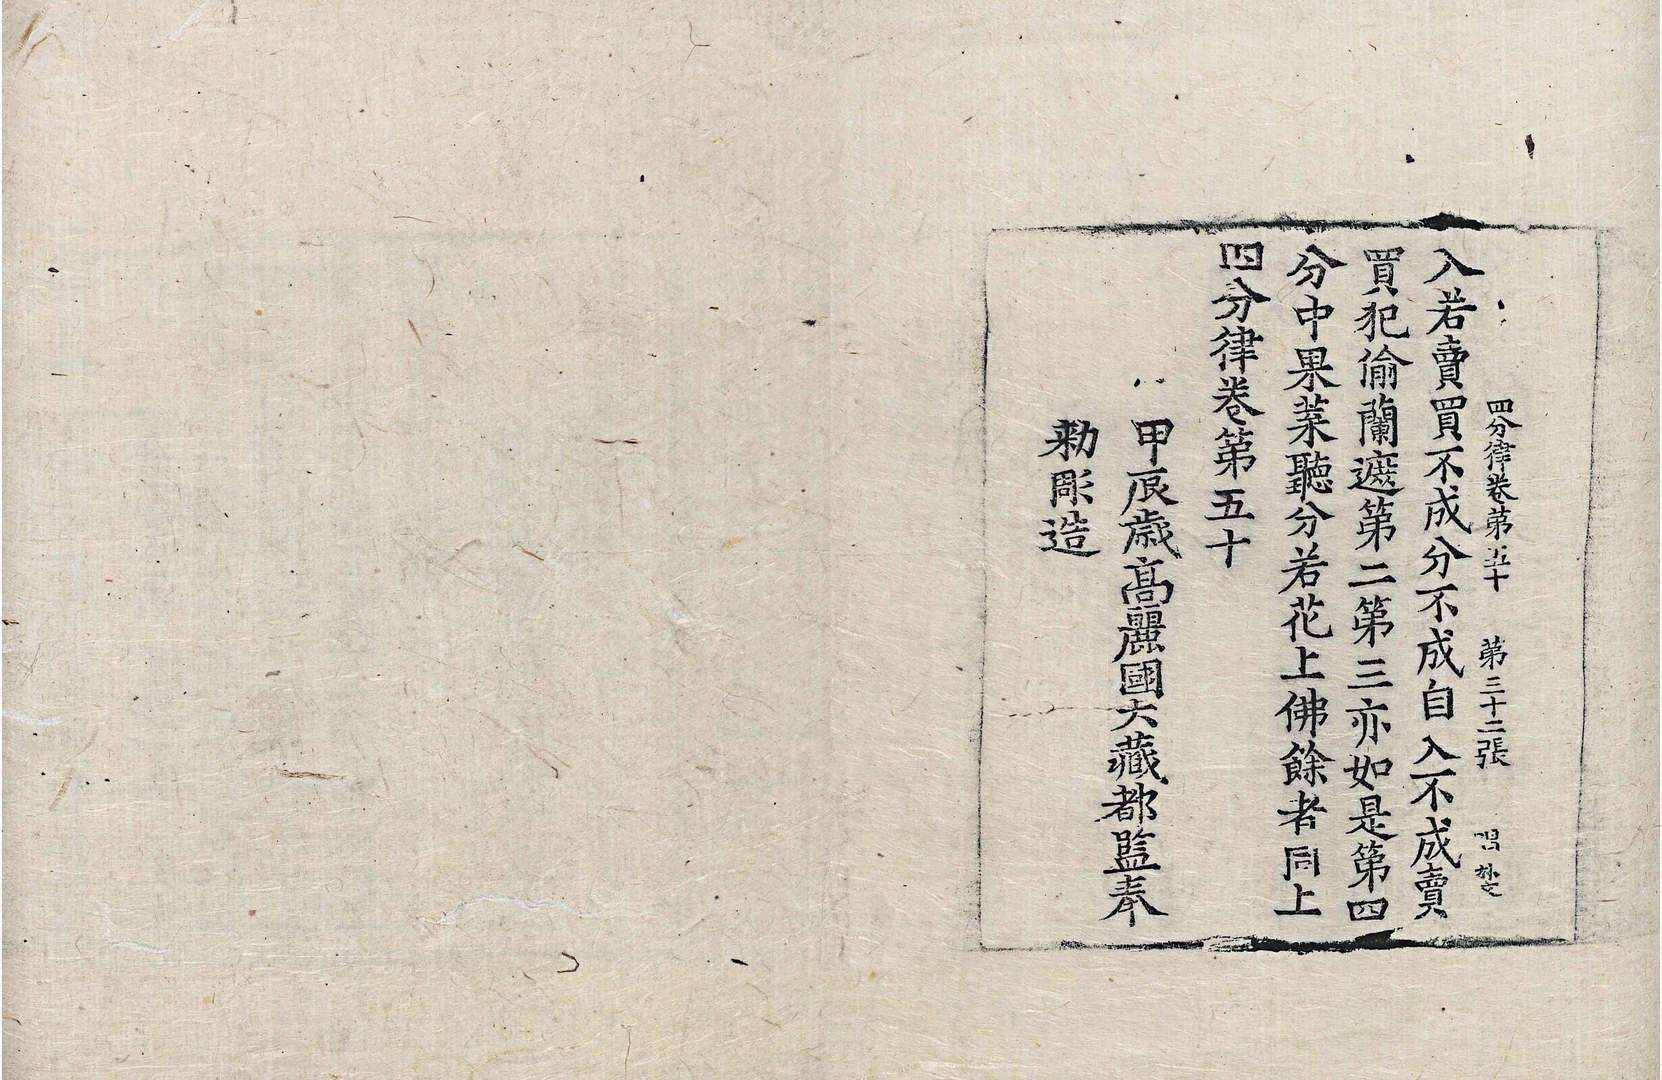 四分律卷第五十 第三十二張 唱
入若賣買不成分不成自入不成賣
買犯偷蘭遮第二第三亦如是第四
分中果菜聽分若花上佛餘者同上
四分律卷第五十
甲辰歲高麗國大藏都監奉
勅彫造